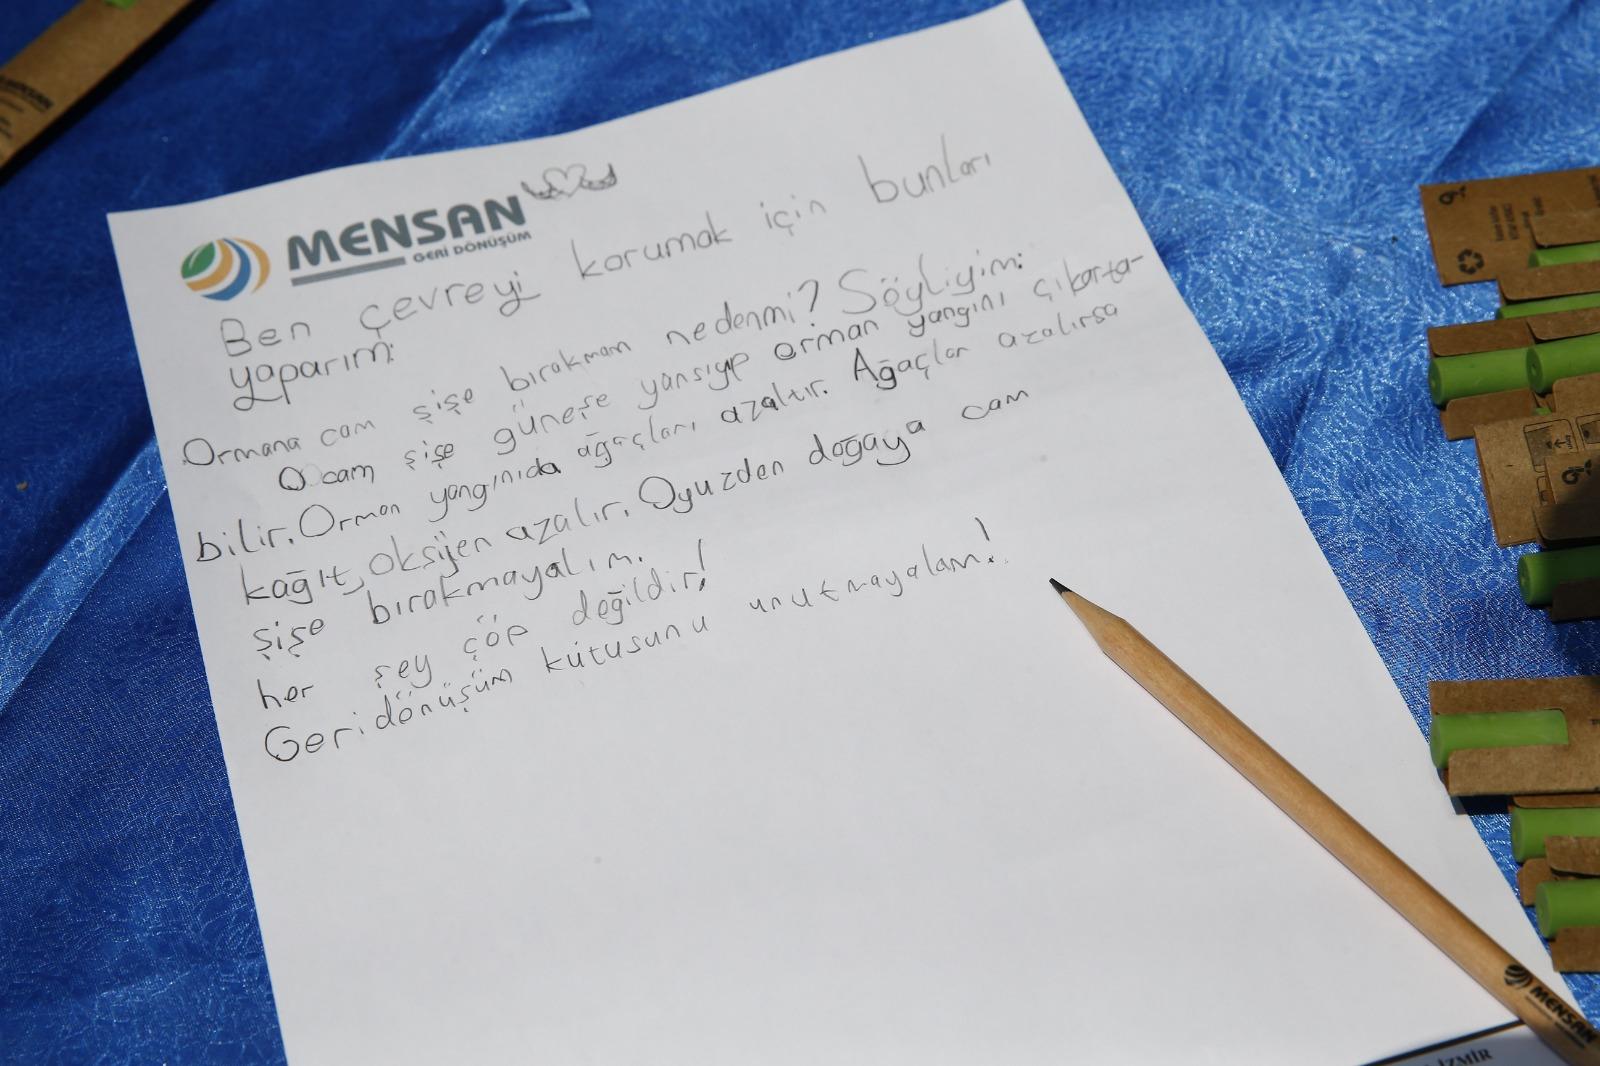 MENSAN
GERİ DÖNÜŞÜM
Ben çevreyi korumak için bunları
yaparım:
Ormana cam şişe bırakmam nedenmi? Söyliyim:
O cam şişe güneşe yansıyıp orman yangını çıkarta-
bilir. Orman yangınıda ağaçları azaltır. Ağaçlar azalırsa
kağıt, oksijen azalır. Oyuzden doğaya cam
şişe bırakmayalım.
her şey çöp değildir!
Geri dönüşüm kutusunu unutmayalam!
MENSAN
İZMİR